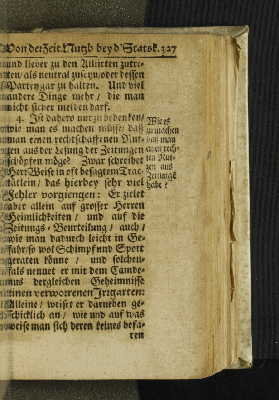 Von der Zeit. Nutzb bey d' Statsk. 327
und lieber zu den Allirten zutre-
ten/ als neutral zuseyn/oder dessen
Parteygar zu halten. Und viel
andere Dinge mehr/ die man
nicht sicher meiden darf.
4. Ist dahero nur zu bedenken/
wie man es machen müsse/ daß
man einen rechtschaffenen Nu-
tzen aus der Lesung der Zeitungen
schöpfen möge? Zwar schreibet
Herr Weise in oft besagtem Trac-
tätlein/ das hierbey sehr viel
Fehler vorgiengen: Er zielet
aber allein auf grosser Herren
Heimlichkeiten/ und auf die
Zeitungs-Beurteilung/ auch/
wie man dadurch leicht in Ge-
fahr/so wol Schimpf und Spott
geraten könne/ und solchen-
fals nennet er mit dem Camde-
nus dergleichen Geheimnisse
einen verworrenen Irrgarten:
Alleine/ weiset er darneben ge-
schicklich an/ wie und auf was
weise man sich deren keines befa-
ren
Wie es
zu machen
daß man
einen rech-
ten Nu-
tzen aus
Zeitungē
habe?